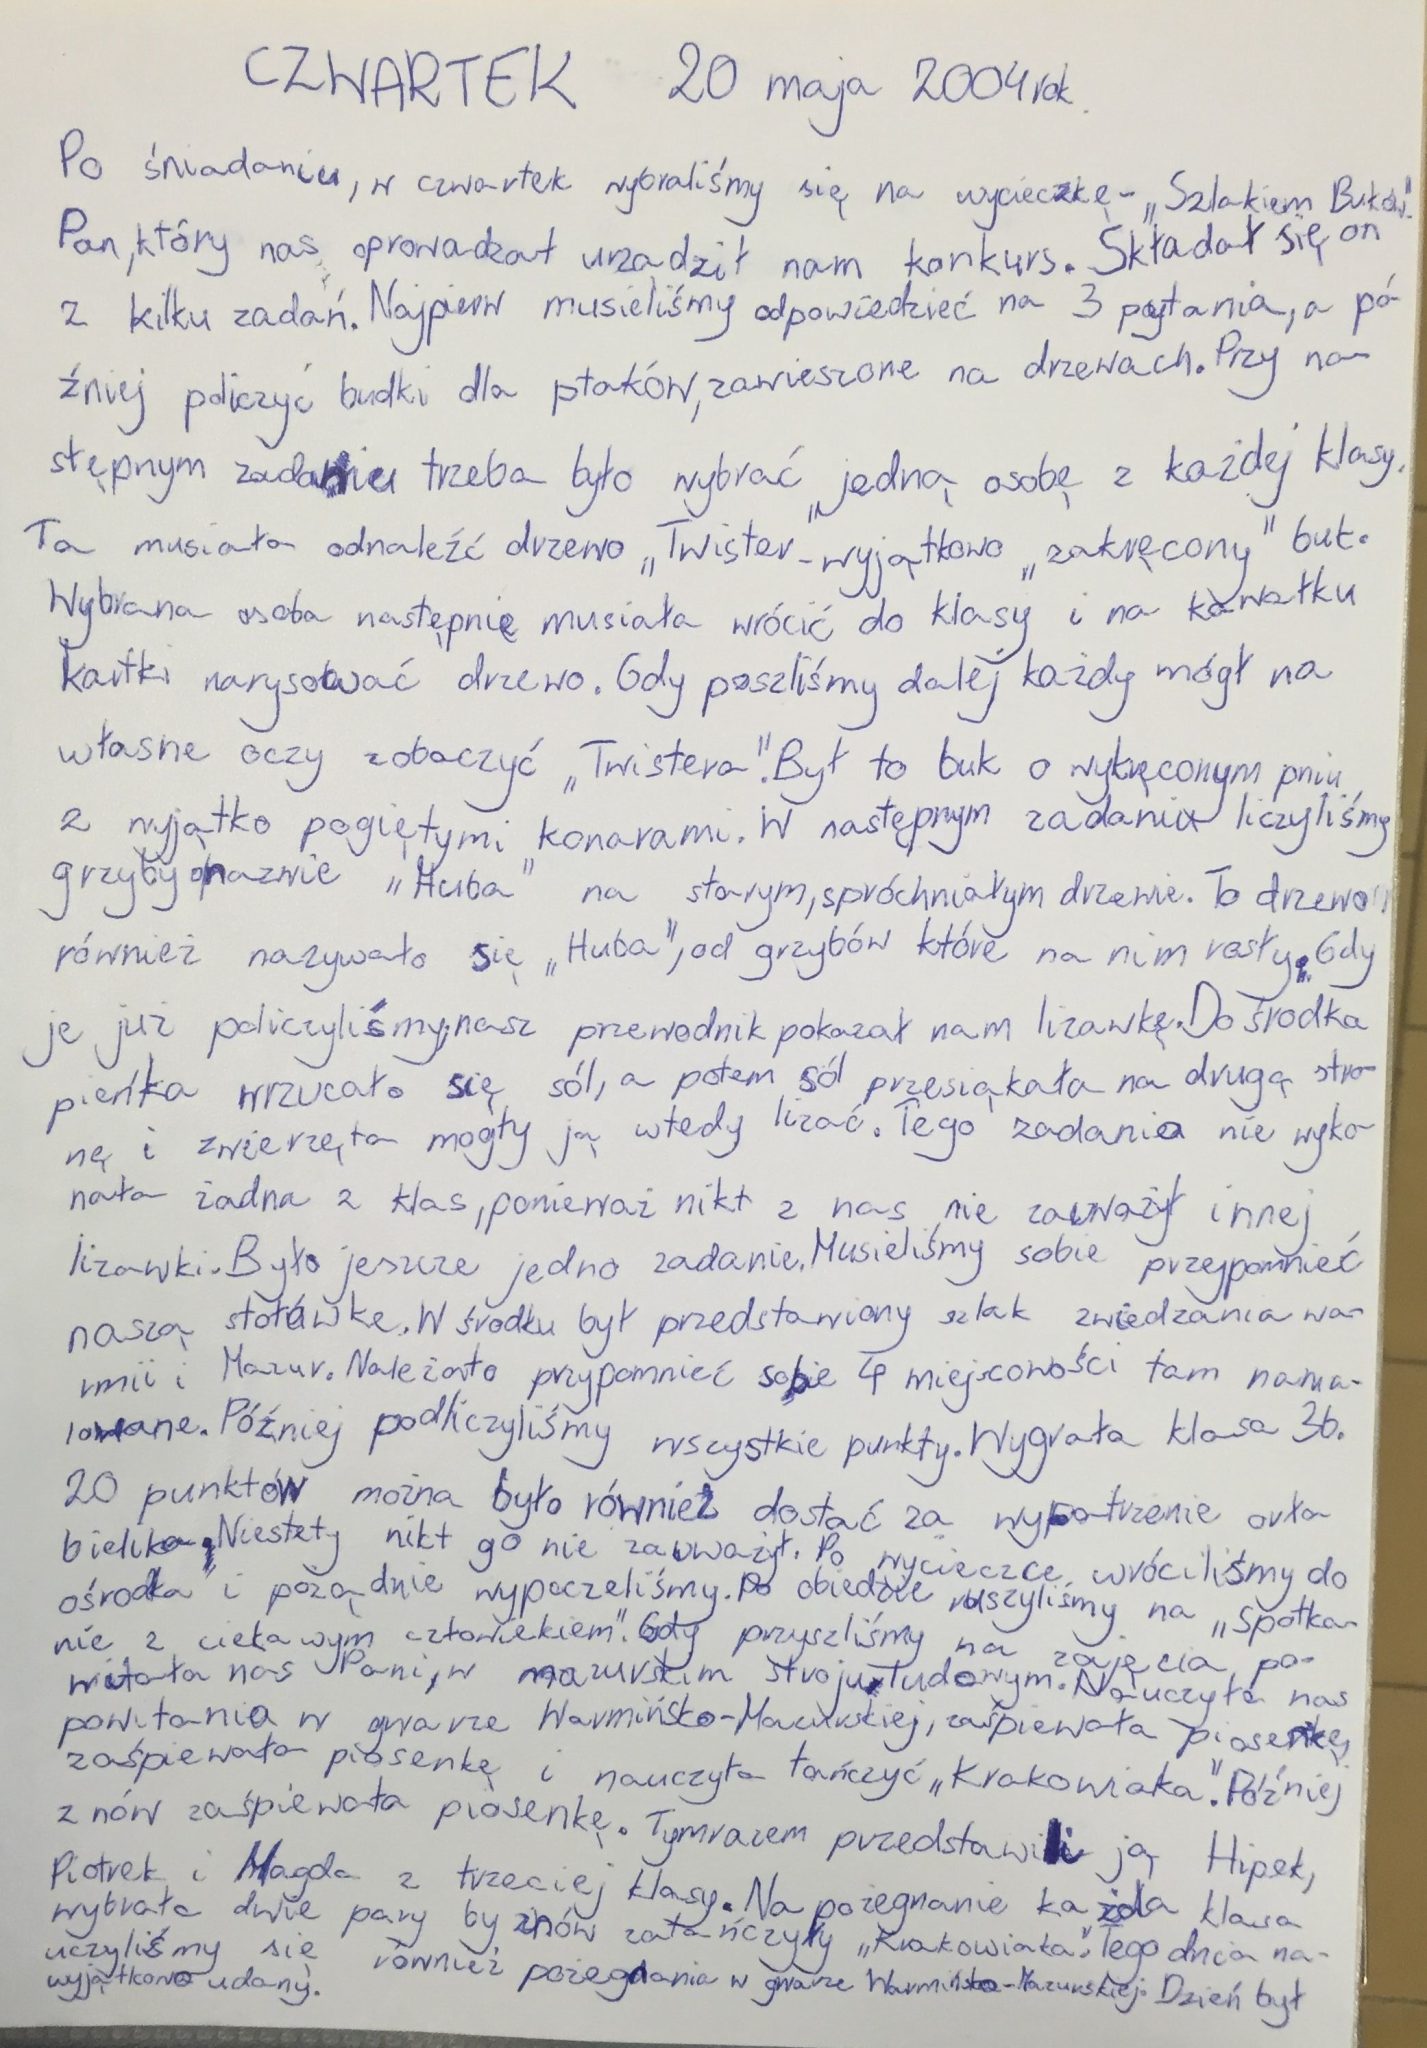 CZWARTEK 20 maja 2004 rok.
Po śniadaniu, w czwartek wybraliśmy się na wycieczkę - „Szlakiem Buków".
Pan, który nas oprowadzał urządził nam konkurs. Składał się on
z kilku zadań. Najpierw musieliśmy odpowiedzieć na 3 pytania, a pó-
źniej policzyć budki dla ptaków, zawieszone na drzewach. Przy na-
stępnym zadaniu trzeba było wybrać jedną osobę z każdej klasy.
Ta musiała odnaleźć drzewo „Twister" - wyjątkowo „zakręcony" buk.
Wybrana osoba następnie musiała wrócić do klasy i na kawałku
kartki narysować drzewo. Gdy poszliśmy dalej każdy mógł na
własne oczy zobaczyć „Twistera". Był to buk o wykręconym pniu
z wyjątko pogiętymi konarami. W następnym zadaniu liczyliśmy
grzyby o nazwie „Huba" na starym, spróchniałym drzewie. To drzewo
również nazywało się „Huba", od grzybów które na nim rosły. Gdy
je już policzyliśmy, nasz przewodnik pokazał nam lizawkę. Do środka
pieńka wrzucało się sól, a potem sól przesiąkała na drugą stro-
nę i zwierzęta mogły ją wtedy lizać. Tego zadania nie wyko-
nała żadna z klas, ponieważ nikt z nas nie zauważył innej
lizawki. Było jeszcze jedno zadanie. Musieliśmy sobie przypomnieć
naszą stołówkę. W środku był przedstawiony szlak zwiedzania wa-
rmii i Mazur. Należało przypomnieć sobie 4 miejscowości tam nama-
lowane. Później podliczyliśmy wszystkie punkty. Wygrała klasa 3b.
20 punktów można było również dostać za wypatrzenie orła
bielika. Niestety nikt go nie zauważył. Po wycieczce wróciliśmy do
ośrodka i pożądnie wypoczeliśmy. Po obiedzie ruszyliśmy na „spotka-
nie z ciekawym człowiekiem". Gdy przyszliśmy na zajęcia, po-
witała nas Pani, w mazurskim stroju ludowym. Nauczyła nas
powitania w gwarze Warmińsko-Mazurskiej, zaśpiewała piosenkę,
zaśpiewała piosenkę i nauczyła tańczyć „Krakowiaka". Później
znów zaśpiewała piosenkę. Tymrazem przedstawili ją Hipek,
Piotrek i Magda z trzeciej klasy. Na pożegnanie każda klasa
wybrała dwie pary by znów zatańczyły „Krakowiaka". Tego dnia na-
uczyliśmy się również pożegnania w gwarze Warmińsko-Mazurskiej. Dzień był
wyjątkowo udany.